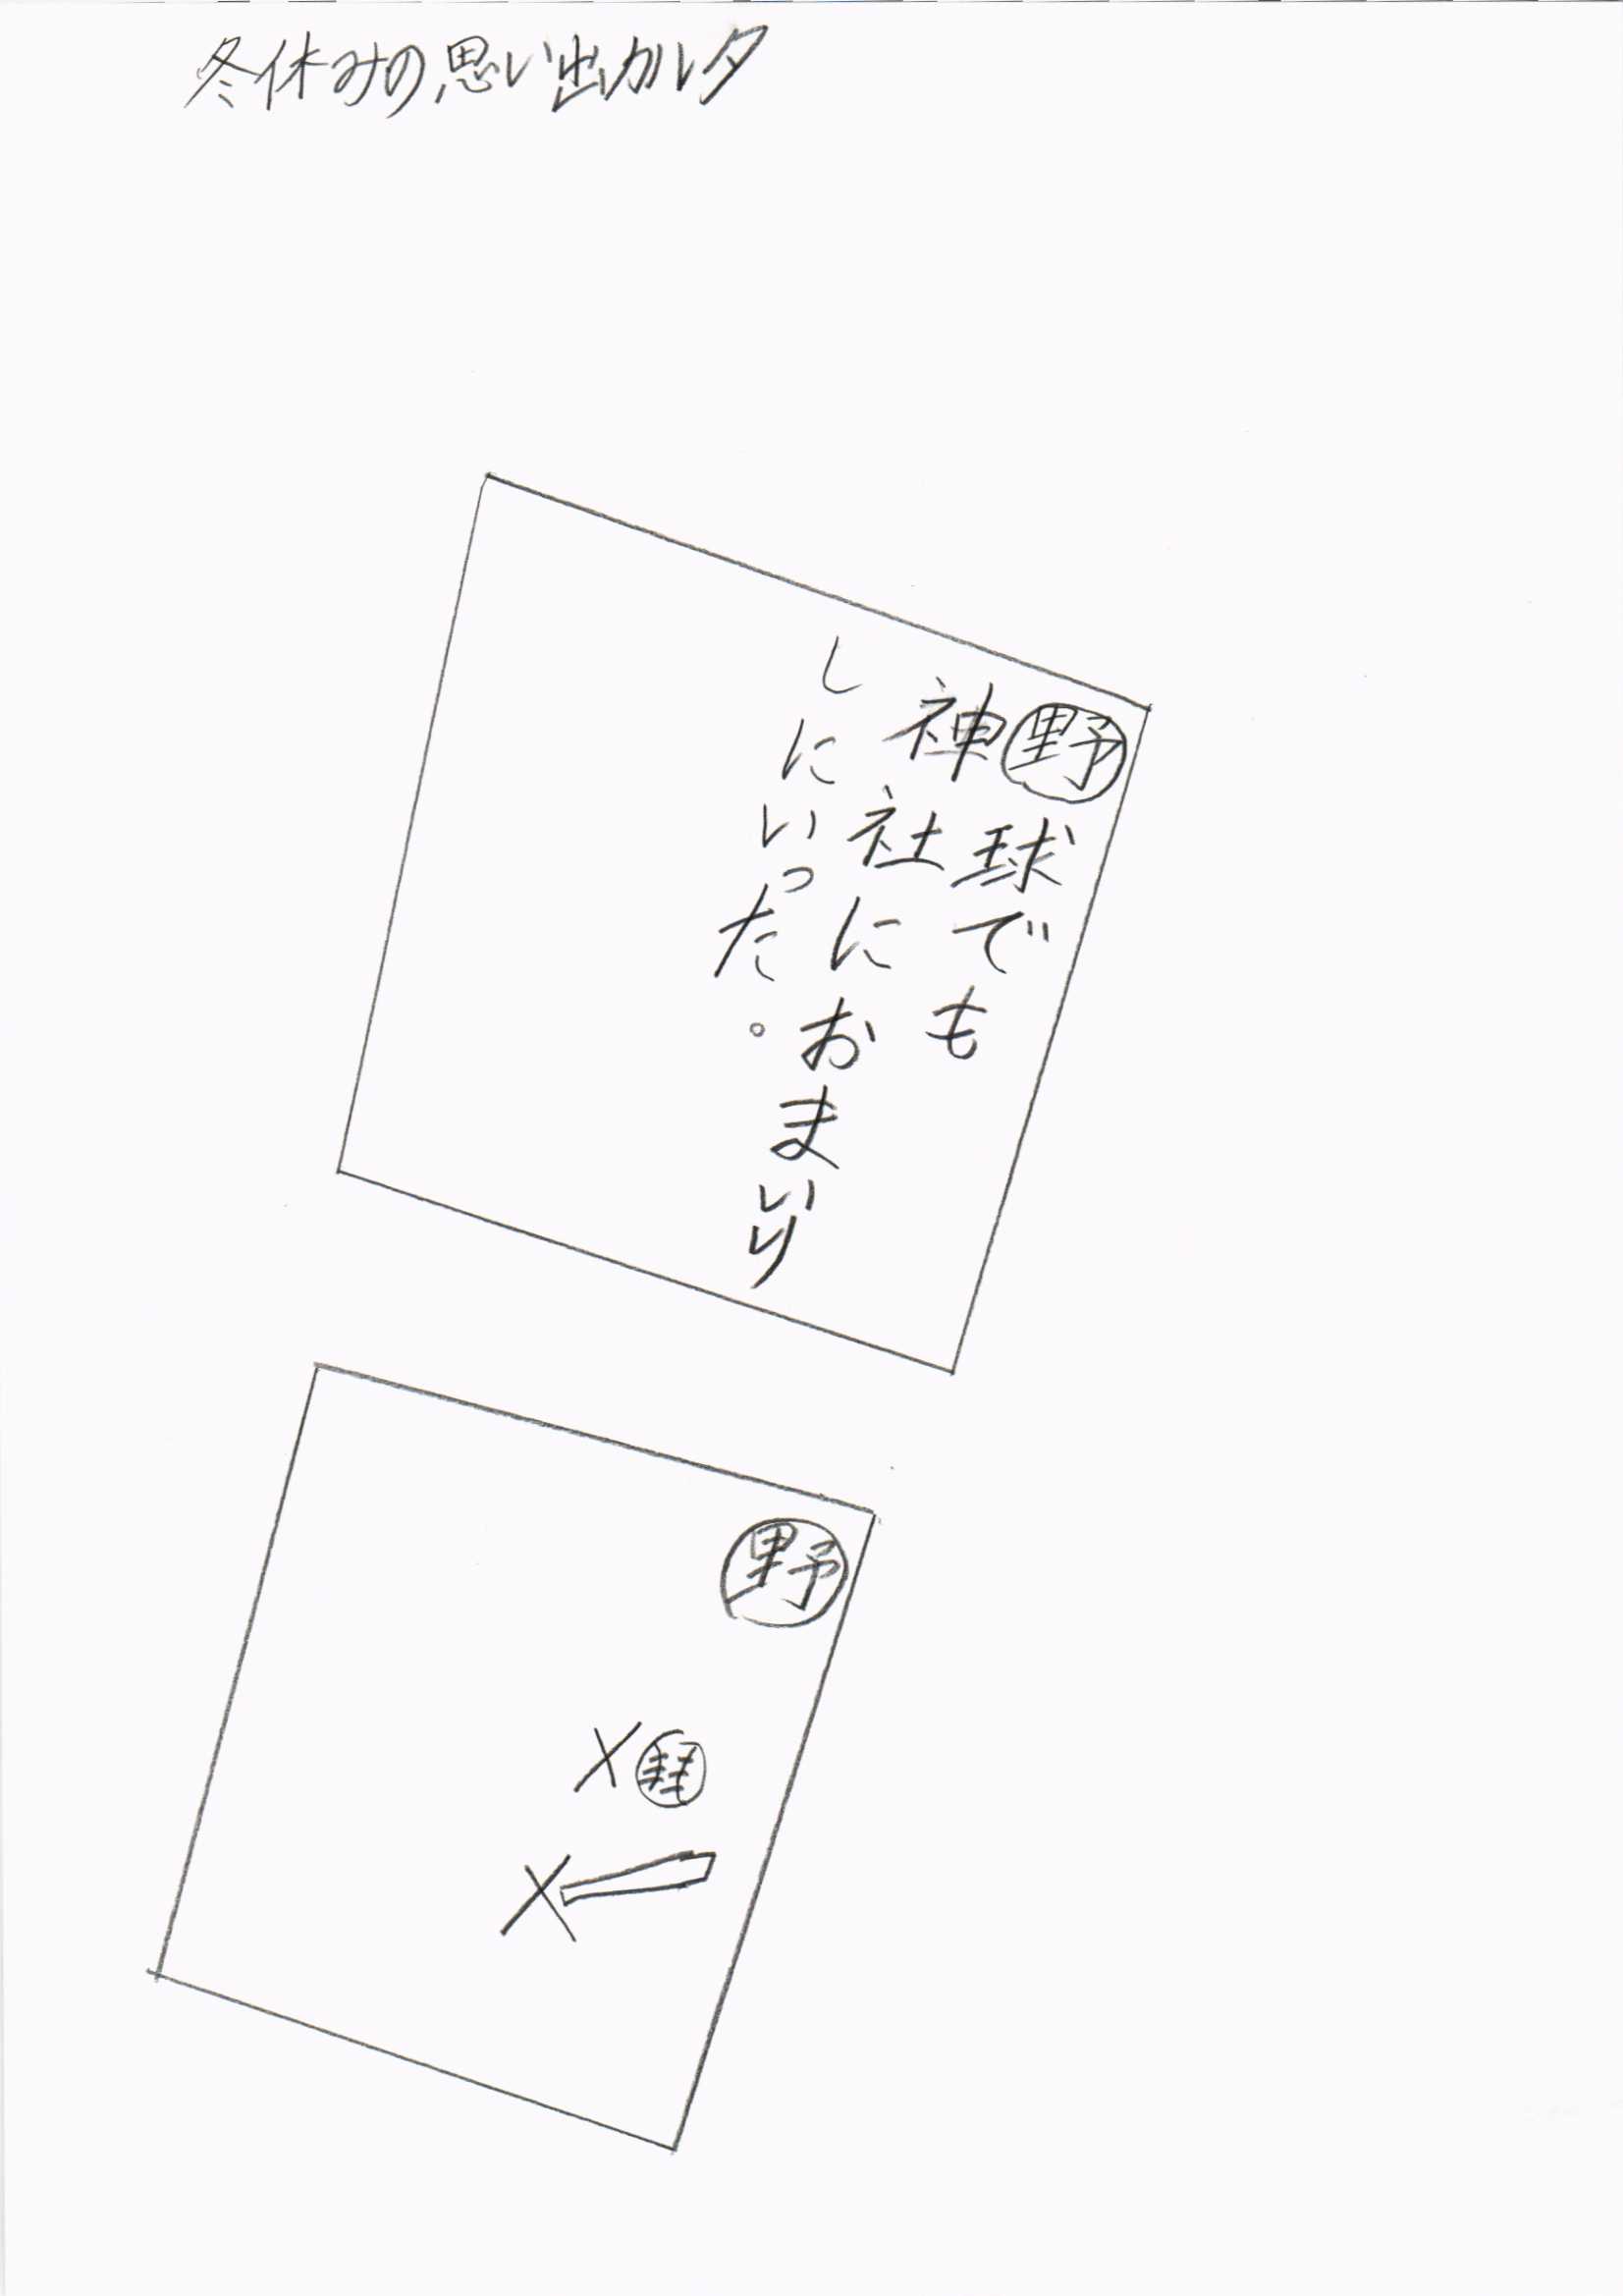 冬休みの思い出カルタ
野球でも
神社におまいり
しにいった。
野